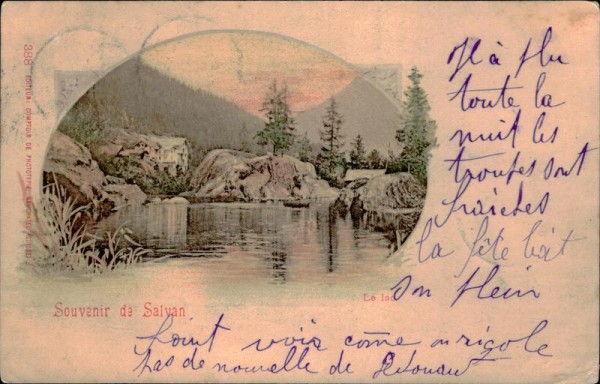 Il a plu
toute la
nuit les
troupes sont
fraiches
la fête bat
son plein
388 EDITEUR COMPTOIR DE PHOTOTYPIE
Souvenir de Salvan
Le lac
voir come on rigole
pas de nouvelle de